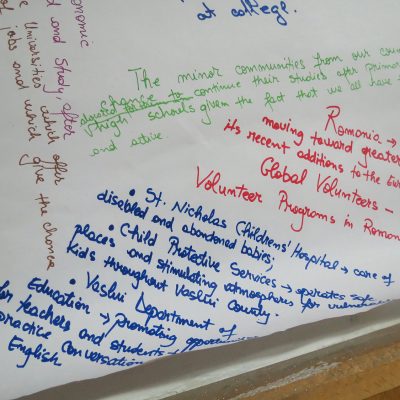 at college.
onomic
d and study after
e Universities which offer
of jobs and which give the chance
The minor communities from our coun
chance to continue their studies after primar
high schools given the fact that we all have t
and active.
Romania →
moving toward greater
its recent additions to the Eur
Global Volunteers -
Volunteer Programs in Roman
• St. Nicholas Childrens' Hospital → care of
disabled and abandoned babies;
• Child Protective Services → operates safe
places and stimulating atmospheres for vulnera
kids throughout Vaslui County.
• Vaslui Department of
Education → promoting opportun
for teachers and students t
practice conversation
English